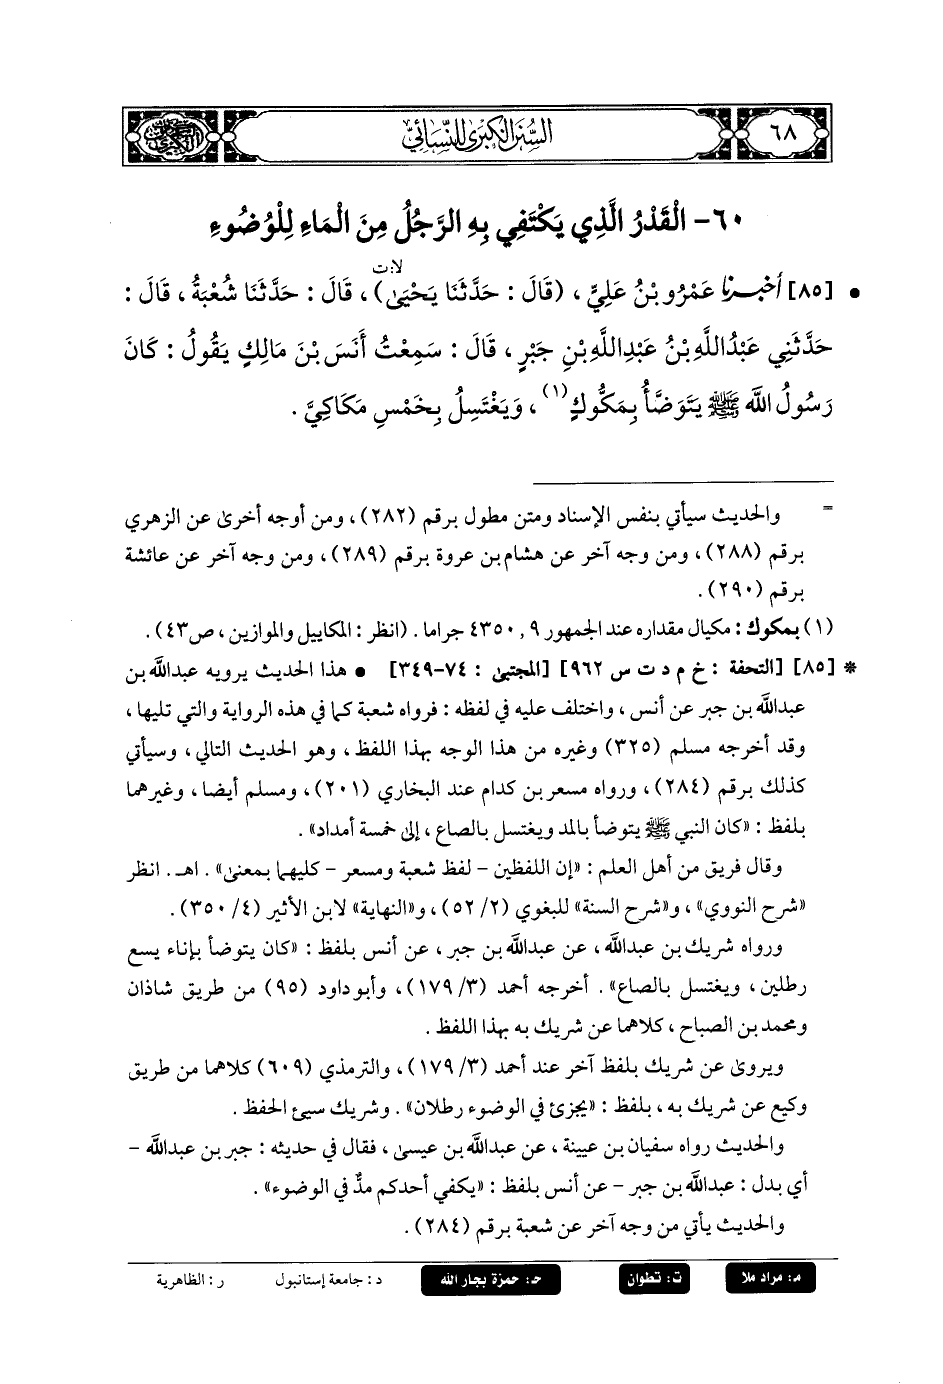 ٦٨
السنن الكبرى للنسائي
٦٠- الْقَدْرُ الَّذِي يَكْتَفِي بِهِ الرَّجُلُ مِنَ الْمَاءِ لِلْوُضُوءِ
• [٨٥] أخبرنا عَمْرُو بْنُ عَلِيٍّ ، (قَالَ : حَدَّثَنَا يَحْيَىٰ)لا:ت ، قَالَ : حَدَّثَنَا شُعْبَةُ ، قَالَ :
حَدَّثَنِي عَبْدُاللَّهِ بْنُ عَبْدِاللَّهِ بْنِ جَبْرٍ ، قَالَ : سَمِعْتُ أَنَسَ بْنَ مَالِكٍ يَقُولُ : كَانَ
رَسُولُ اللَّه ﷺ يَتَوَضَّأُ بِمَكُّوكٍ(١) ، وَيَغْتَسِلُ بِخَمْسِ مَكَاكِيَّ .
= والحديث سيأتي بنفس الإسناد ومتن مطول برقم (٢٨٢) ، ومن أوجه أخرىٰ عن الزهري
برقم (٢٨٨) ، ومن وجه آخر عن هشام بن عروة برقم (٢٨٩) ، ومن وجه آخر عن عائشة
برقم (٢٩٠) .
(١) بمكوك : مكيال مقداره عند الجمهور ٤٣٥٠,٩ جراما . (انظر : المكاييل والموازين ، ص٤٣) .
* [٨٥] [التحفة : خ م د ت س ٩٦٢] [المجتبىٰ : ٧٤-٣٤٩] • هذا الحديث يرويه عبدالله بن
عبدالله بن جبر عن أنس ، واختلف عليه في لفظه : فرواه شعبة كما في هذه الرواية والتي تليها ،
وقد أخرجه مسلم (٣٢٥) وغيره من هذا الوجه بهذا اللفظ ، وهو الحديث التالي ، وسيأتي
كذلك برقم (٢٨٤) ، ورواه مسعر بن كدام عند البخاري (٢٠١) ، ومسلم أيضا ، وغيرهما
بلفظ : «كان النبي ﷺ يتوضأ بالمد ويغتسل بالصاع ، إلىٰ خمسة أمداد» .
وقال فريق من أهل العلم : «إن اللفظين - لفظ شعبة ومسعر - كليهما بمعنىٰ» . اهـ . انظر
«شرح النووي» ، و«شرح السنة» للبغوي (٢/ ٥٢) ، و«النهاية» لابن الأثير (٤/ ٣٥٠) .
ورواه شريك بن عبدالله ، عن عبدالله بن جبر ، عن أنس بلفظ : «كان يتوضأ بإناء يسع
رطلين ، ويغتسل بالصاع» . أخرجه أحمد (٣/ ١٧٩) ، وأبو داود (٩٥) من طريق شاذان
ومحمد بن الصباح ، كلاهما عن شريك به بهذا اللفظ .
ويروىٰ عن شريك بلفظ آخر عند أحمد (٣/ ١٧٩) ، والترمذي (٦٠٩) كلاهما من طريق
وكيع عن شريك به ، بلفظ : «يجزئ في الوضوء رطلان» . وشريك سيئ الحفظ .
والحديث رواه سفيان بن عيينة ، عن عبدالله بن عيسىٰ ، فقال في حديثه : جبر بن عبدالله -
أي بدل : عبدالله بن جبر - عن أنس بلفظ : «يكفي أحدكم مدٌّ في الوضوء» .
والحديث يأتي من وجه آخر عن شعبة برقم (٢٨٤) .
م: مراد ملا ت: تطوان حـ: حمزة بجار الله د: جامعة إستانبول ر: الظاهرية